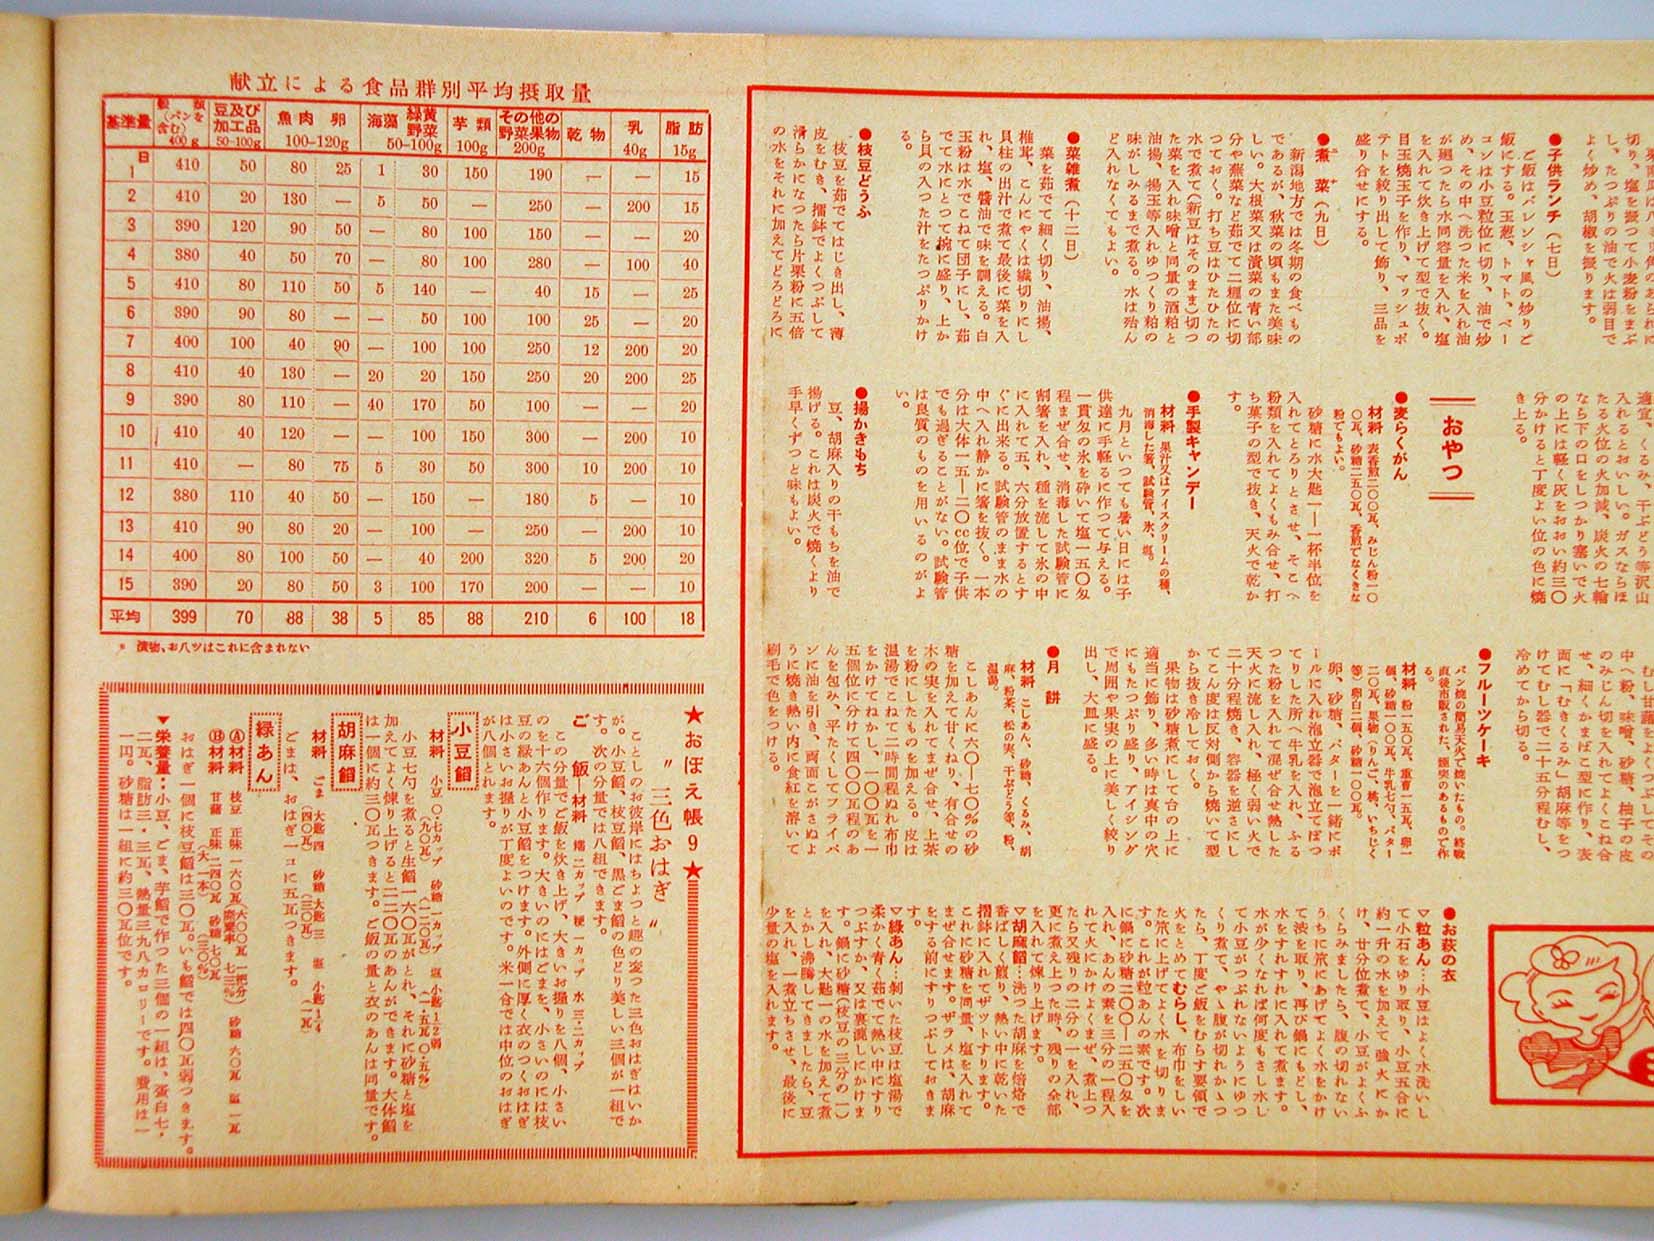 切り、塩を振つて小麦粉をまぶ
し、たつぷりの油で火は弱目で
よく炒め、胡椒を振ります。
●子供ランチ（七日）
ご飯はバレンシャ風の炒りご
飯にする。玉葱、トマト、ベー
コンは小豆粒位に切り、油で炒
め、その中へ洗つた米を入れ油
が廻つたら水同容量を入れ、塩
を入れて炊き上げて型で抜く。
目玉焼玉子を作り、マッシュポ
テトを絞り出して飾り、三品を
盛り合せにする。
●煮菜（九日）
新潟地方では冬期の食べもの
であるが、秋菜の頃もまた美味
しい。大根菜又は漬菜の青い部
分や蕪菜など茹でて二糎位に切
つておく。打ち豆はひたひたの
水で煮て（新豆はそのまま）切つ
た菜を入れ味噌と同量の酒粕と
油揚、揚玉等入れゆつくり粕の
味がしみるまで煮る。水は殆ん
ど入れなくてもよい。
●菜雑煮（十二日）
菜を茹でて細く切り、油揚、
椎茸、こんにやくは繊切りにし
貝柱の出汁で煮て最後に菜を入
れ、塩、醤油で味を調える。白
玉粉は水でこねて団子にし、茹
でて水にとつて椀に盛り、上か
ら貝の入つた汁をたつぷりかけ
る。
●枝豆どうふ
枝豆を茹でてはじき出し、薄
皮をむき、擂鉢でよくつぶして
滑らかになつたら片栗粉に五倍
の水をそれに加えてどろどろに
適宜、くるみ、干ぶどう等沢山
入れるとおいしい。ガスならほ
たる火位の火加減、炭火の七輪
なら下の口をしつかり塞いで火
の上には軽く灰をおおい約三〇
分かけると丁度よい位の色に焼
き上る。
おやつ
●麦らくがん
材料 麦香煎二〇〇瓦、みじん粉一〇
〇瓦、砂糖二五〇瓦、香煎でなくきな
粉でもよい。
砂糖に水大匙一―一杯半位を
入れてとろりとさせ、そこへ
粉類を入れてよくもみ合せ、打
ち菓子の型で抜き、天火で乾か
す。
●手製キャンデー
材料 果汁又はアイスクリームの種、
消毒した箸、試験管、氷、塩。
九月といつても暑い日には子
供達に手軽るに作つて与える。
一貫匁の氷を砕いて塩一五〇匁
程まぜ合せ、消毒した試験管に
割箸を入れ、種を流して氷の中
に入れて五、六分放置するとす
ぐに出来る。試験管のまま水の
中へ入れ静かに箸を抜く。一本
分は大体一五―二〇cc位で子供
でも過ぎることがない。試験管
は良質のものを用いるのがよ
い。
●揚かきもち
豆、胡麻入りの干もちを油で
揚げる。これは炭火で焼くより
手早くずつと味もよい。
むし甘藷をよくつぶしてその
中へ粉、味噌、砂糖、柚子の皮
のみじん切を入れてよくこね合
せ、細くかまぼこ型に作り、表
面に「むきくるみ」胡麻等をつ
けてむし器で二十五分程むし、
冷めてから切る。
●フルーツケーキ
パン焼の簡易天火で焼いたもの。終戦
直後市販された、煙突のあるもので作
る。
材料 粉一五〇瓦、重曹一五瓦、卵一
個、砂糖一〇〇瓦、牛乳七勺、バター
二〇瓦、果物（りんご、桃、いちじく
等）卵白二個、砂糖一〇〇瓦。
卵、砂糖、バターを一緒にボ
ールに入れ泡立器で泡立てぽつ
てりした所へ牛乳を入れ、ふる
つた粉を入れて混ぜ合せ熱した
天火に流し入れ、極く弱い火で
二十分程焼き、容器を逆さにし
てこん度は反対側から焼いて型
から抜き冷しておく。
果物は砂糖煮にして台の上に
適当に飾り、多い時は真中の穴
にもたつぷり盛り、アイシング
で周囲や果実の上に美しく絞り
出し、大皿に盛る。
●月餅
材料 こしあん、砂糖、くるみ、胡
麻、粉茶、松の実、干ぶどう等、粉、
温湯。
こしあんに六〇―七〇％の砂
糖を加えて甘くねり、有合せの
木の実を入れてまぜ合せ、上茶
を粉にしたものを加える。皮は
温湯でこねて二時間程ぬれ布巾
をかけてねかし、一〇〇瓦を一
五個位に分けて四〇〇瓦程のあ
んを包み、平たくしてフライパ
ンに油を引き、両面こがさぬよ
うに焼き熱い内に食紅を溶いて
刷毛で色をつける。
●お萩の衣
▽粒あん…小豆はよく水洗いし
て小石をゆり取り、小豆五合に
約一升の水を加えて強火にか
け、廿分位煮て、小豆がよくふ
くらみましたら、腹の切れない
うちに笊にあげてよく水をかけ
て渋を取り、再び鍋にもどし、
水をすれすれに入れて煮ます。
水が少くなれば何度もさし水し
て小豆がつぶれないようにゆつ
くり煮て、やゝ腹が切れかゝつ
たら、丁度ご飯をむらす要領で
火をとめてむらし、布巾をしい
た笊に上げてよく水を切りま
す。これが粒あんの素です。次
に鍋に砂糖二〇〇―二五〇匁を
入れ、あんの素を三分の一程入
れて火にかけよくまぜ、煮上つ
たら又残りの二分の一を入れ、
更に煮え上つた時、残りの全部
を入れて煉り上げます。
▽胡麻餡…洗つた胡麻を焙烙で
香ばしく煎り、熱い中に乾いた
摺鉢に入れてザットすります。
これに砂糖を同量、塩を入れて
まぜ合せます。ザラメは、胡麻
をする前にすりつぶしておきま
す。
▽緑あん…剥いた枝豆は塩湯で
柔かく青く茹でて熱い中にすり
つぶすか、又は裏漉しにかけま
す。鍋に砂糖（枝豆の三分の一）
を入れ、大匙一の水を加えて煮
とかし沸騰してきましたら、豆
を入れ、一煮立ちさせ、最後に
少量の塩を入れます。
献立による食品群別平均摂取量
基準量 穀類（パンを含む）400g 豆及び加工品50-100g 魚肉 卵100-120g 海藻 緑黄野菜50-100g 芋類100g その他の野菜果物200g 乾物 乳40g 脂肪15g
1日 410 50 80 25 1 30 150 190 ― ― 15
2 410 20 130 ― 5 50 ― 250 ― 200 15
3 390 120 90 50 ― 80 100 150 ― ― 20
4 380 40 50 70 ― 80 100 280 ― 100 40
5 410 80 110 50 5 140 ― 40 15 ― 25
6 390 90 80 ― ― 50 100 100 25 ― 20
7 400 100 40 90 ― 100 100 250 12 200 20
8 410 40 130 ― 20 20 150 250 20 200 25
9 390 80 110 ― 40 170 50 100 ― ― 20
10 410 40 120 ― ― 100 150 300 ― 200 10
11 410 ― 80 75 5 30 50 300 10 200 10
12 380 110 40 50 ― 150 ― 180 5 ― 10
13 410 90 80 20 ― 100 ― 250 ― 200 10
14 400 80 100 50 ― 40 200 320 5 200 20
15 390 20 80 50 3 100 170 200 ― ― 10
平均 399 70 88 38 5 85 88 210 6 100 18
* 漬物、お八ツはこれに含まれない
★おぼえ帳9★
〝三色おはぎ〟
ことしのお彼岸にはちよつと趣の変つた三色おはぎはいか
が。小豆餡、枝豆餡、黒ごま餡の色どり美しい三個が一組で
す。次の分量では八組できます。
ご飯―材料 糯二カップ 粳一カップ 水三・二カップ
この分量でご飯を炊き上げ、大きいお握りを八個、小さい
のを十六個作ります。大きいのにはごまを、小さいのには枝
豆の緑あんと小豆餡をつけます。外側に厚く衣のつくおはぎ
は小さいお握りが丁度よいのです。米一合では中位のおはぎ
が八個とれます。
小豆餡
材料 小豆〇・七カップ（九〇瓦） 砂糖一カップ（一二〇瓦） 塩小匙1/2弱（一・五瓦〇・五％）
小豆七勺を煮ると生餡一六〇瓦がとれ、それに砂糖と塩を
加えてよく煉り上げると二二〇瓦のあんができます。大体餡
は一個に約三〇瓦つきます。ご飯の量と衣のあんは同量です。
胡麻餡
材料 ごま 大匙四（四〇瓦） 砂糖 大匙三（三〇瓦） 塩 小匙1/4（一瓦）
ごまは、おはぎ一コに五瓦つきます。
緑あん
Ⓐ材料 枝豆 正味一六〇瓦（六〇〇瓦一把分）廃棄率七三％ 砂糖六〇瓦 塩一瓦
Ⓑ材料 甘藷 正味二四〇瓦（大一本） 砂糖七〇瓦（三〇％）
おはぎ一個に枝豆餡は三〇瓦。いも餡では四〇瓦弱つきます。
▼栄養量…小豆、ごま、芋餡で作つた三個の一組は、蛋白七・
二瓦、脂肪三・三瓦、熱量三九八カロリーです。費用は一
一円。砂糖は一組に約三〇瓦位です。